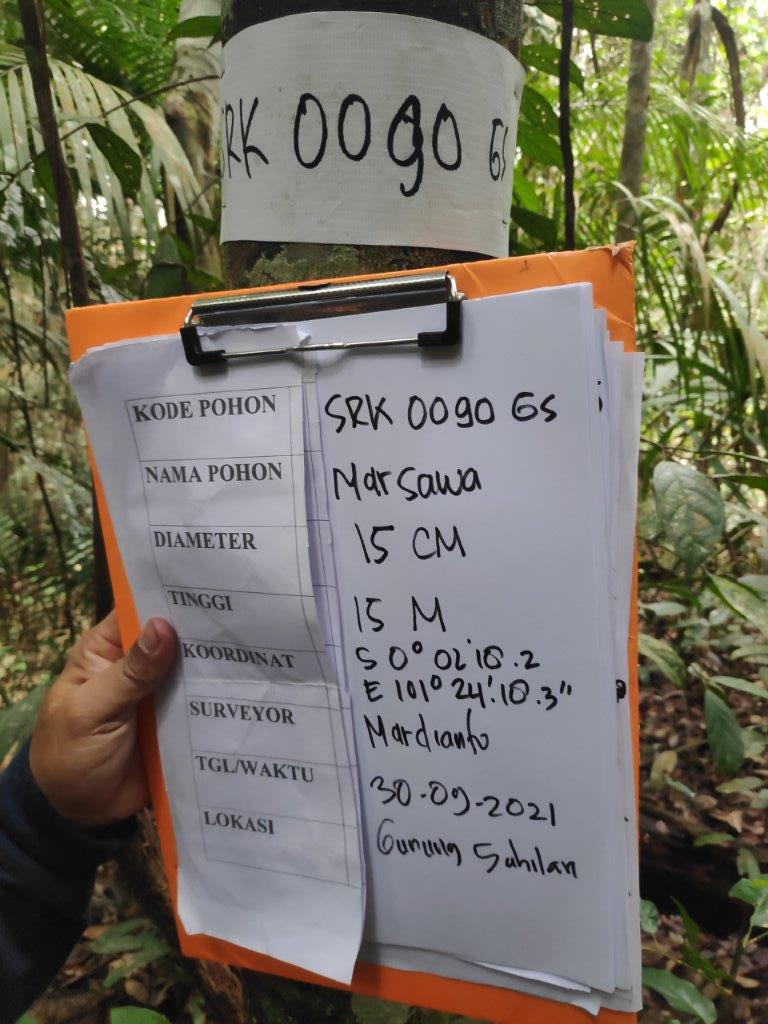 SRK 0090 GS
KODE POHON SRK 0090 GS
NAMA POHON Marsawa
DIAMETER 15 CM
TINGGI 15 M
KOORDINAT S 0° 02'10.2
E 101° 24'.10.3"
SURVEYOR Mardianto
TGL/WAKTU 30-09-2021
LOKASI Gunung Sahilan